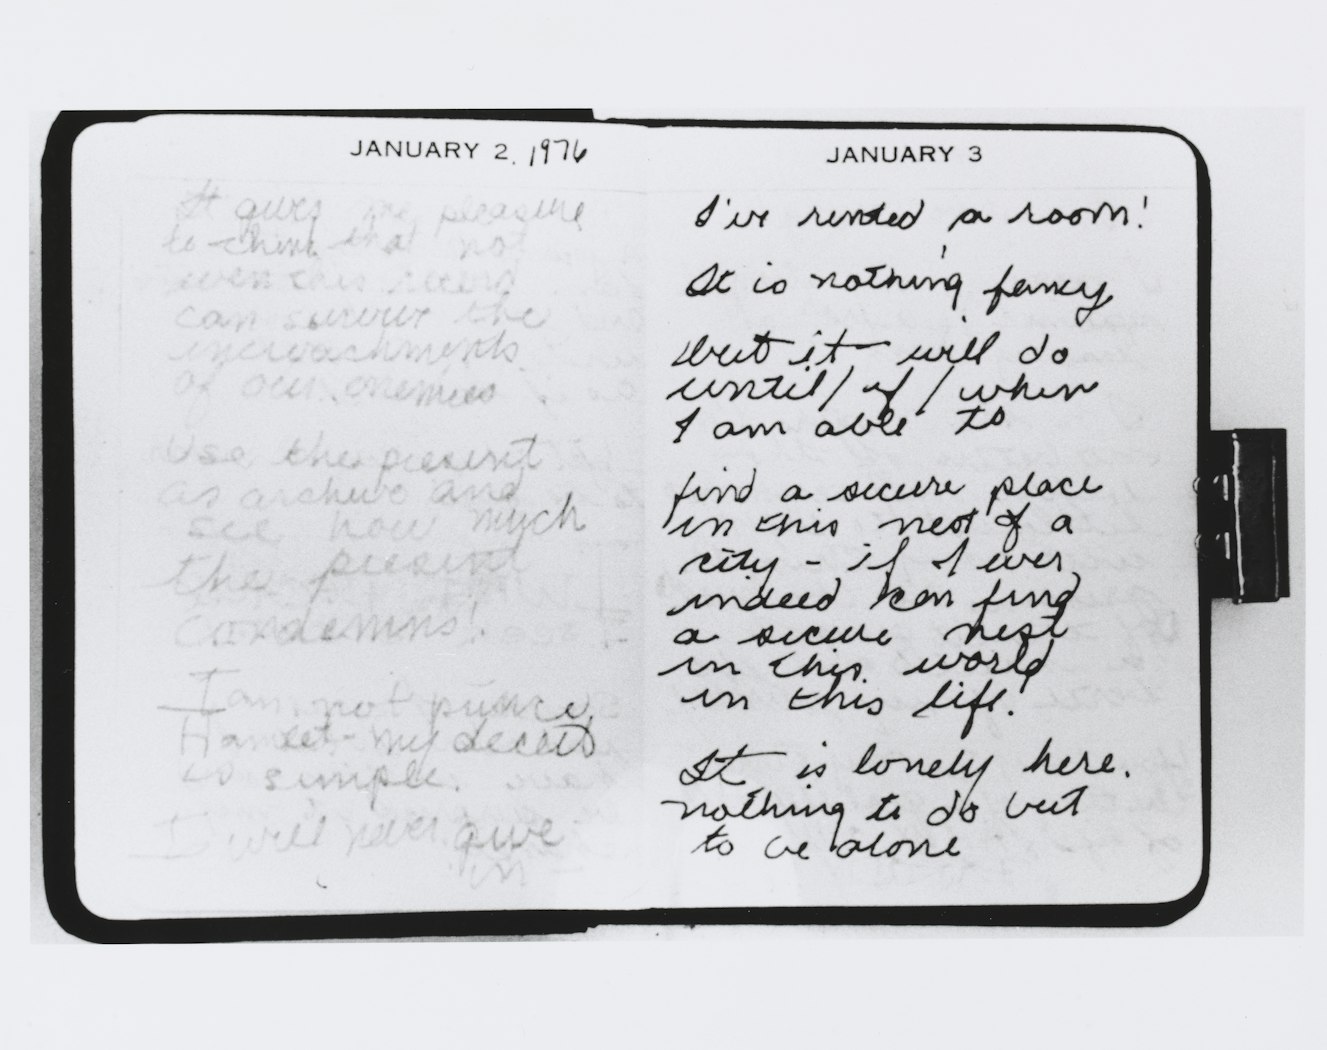 JANUARY 2, 1976
It gives me pleasure
to think that not
even this record
can survive the
encroachments
of our enemies
Use the present
as archive and
see how much
the present
condemns!
I am not prince
Hamlet - my deceit
is simple.
I will never give
in
JANUARY 3
I've rented a room!
It is nothing fancy
but it will do
until / if / when
I am able to
find a secure place
in this nest of a
city - if I ever
indeed can find
a secure nest
in this world
in this life!
It is lonely here.
nothing to do but
to be alone